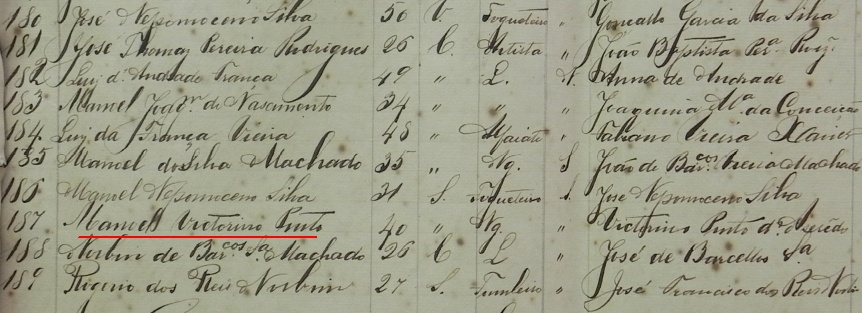 180 José Nepomoceno Silva 50 V. Fogueteiro " Gonçallo Garcia da Silva
181 José Thomaz Pereira Rodrigues 26 C. Artista " João Baptista Perª Roiz
182 Luiz d'Andrade Franca 49 " L. N. Anna de Andrade
183 Manoel Joaqm de Nascimento 34 " " " Joaquina Mª da Conceição
184 Luiz da França Vieira 48 " Alfaiate " Fabiano Vieira Xavier
185 Manoel da Silva Machado 35 " Ng. S João de Barcos Vieira Machado
186 Manoel Nepomoceno Silva 31 S. Fogueteiro S. José Nepomoceno Silva
187 Manoel Victorino Pinto 40 " Ng. " Victorino Pinto d'
188 Norbim de Barcos Sª Machado 26 C L " José de Barcellos Sª
189 dos Reis Norbim 27 S. Funileiro " José Francisco dos Reis